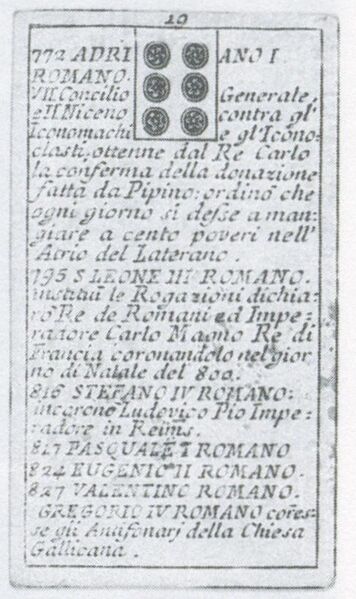 19
772 ADRI ANO I.
ROMANO.
VII. Concilio Generale,
e II Niceno contra gl'
Iconomachi e gl'Icono=
clasti, ottenne dal Re Carlo
la conferma della donazione
fatta da Pipino: ordinò che
ogni giorno si desse a man=
giare a cento poveri nell'
Atrio del Laterano.
795 S LEONE III ROMANO.
instituì le Rogazioni dichia=
rò Re de Romani ed Impe=
radore Carlo Magno Re di
Francia coronandolo nel gior
no di Natale del 800.
816 STEFANO IV ROMANO:
incoronò Ludovico Pio Impe=
radore in Reims.
817 PASQUALE I ROMANO
824 EUGENIO II ROMANO.
827 VALENTINO ROMANO.
GREGORIO IV ROMANO cores=
se gli Antifonarj della Chiesa
Gallicana.